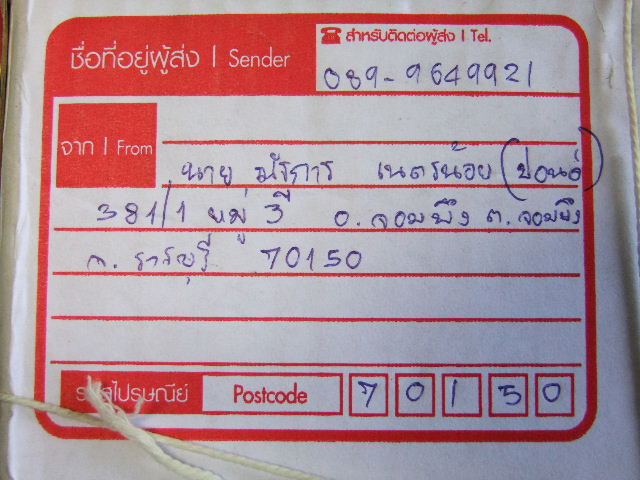 ชื่อที่อยู่ผู้ส่ง | Sender
☎ สำหรับติดต่อผู้ส่ง | Tel.
089-9649921
จาก | From
นาย เนตรน้อย
381/1 หมู่ 3 อ. จอมบึง ต. จอมบึง
จ. ราชบุรี 70150
รหัสไปรษณีย์ Postcode 70150